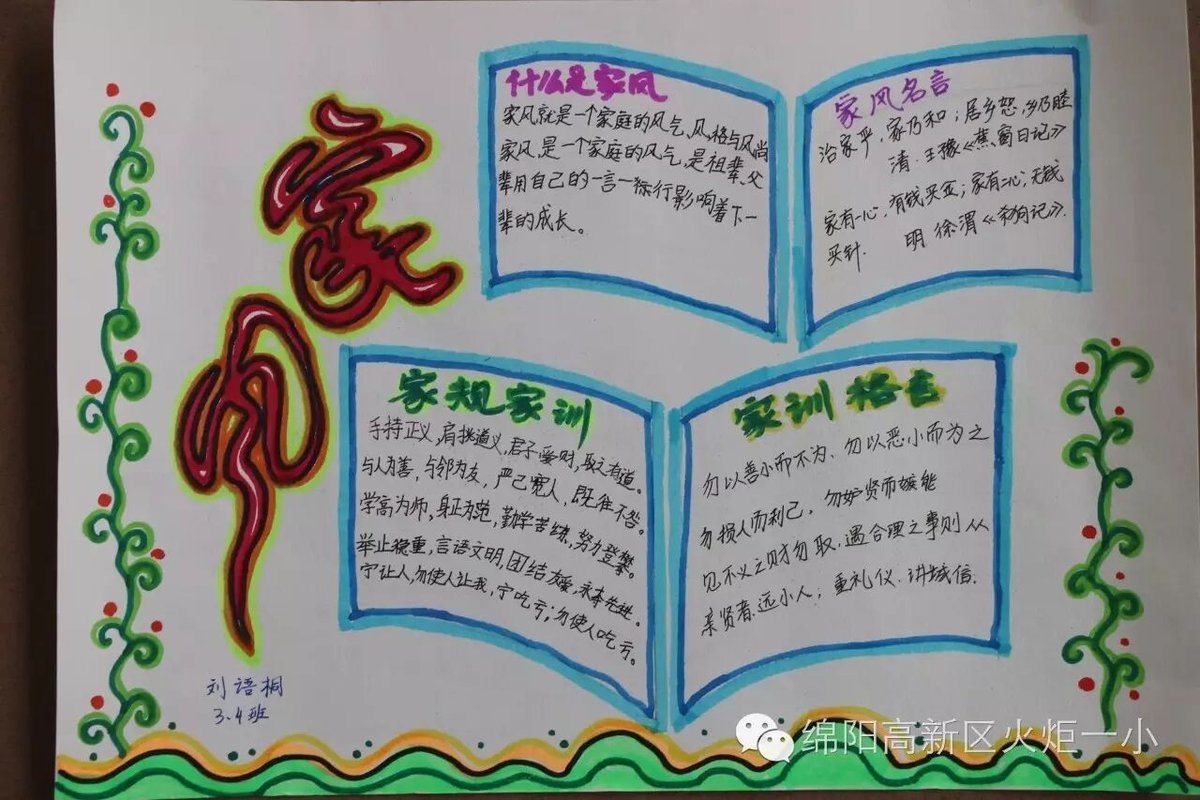 家风
什么是家风
家风就是一个家庭的风气、风格与风尚
家风是一个家庭的风气,是祖辈、父
辈用自己的一言一行影响着下一
辈的成长。
家风名言
治家严,家乃和;居乡恕,乡乃睦
清·王豫《蕉窗日记》
家有一心,有钱买金;家有二心,无钱
买针. 明 徐渭《杀狗记》.
家规家训
手持正义,肩挑道义,君子爱财,取之有道。
与人为善,与邻为友,严己宽人,既往不咎。
学高为师,身正为范,勤学苦练,努力登攀。
举止稳重,言语文明,团结友爱,永争先进。
宁让人,勿使人让我,宁吃亏;勿使人吃亏。
家训格言
勿以善小而不为、勿以恶小而为之
勿损人而利己,勿妒贤而嫉能
见不义之财勿取.遇合理之事则从
亲贤者.远小人;重礼仪.讲诚信.
刘语桐
3.4班
绵阳高新区火炬一小